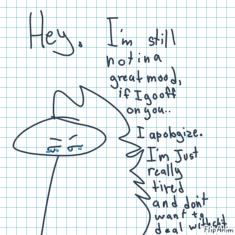 Hey.
I'm still
not in a
great mood,
if I go off
on you..
I apologize.
I'm Just
really
tired
and don't
want to
deal without
FlipAnim